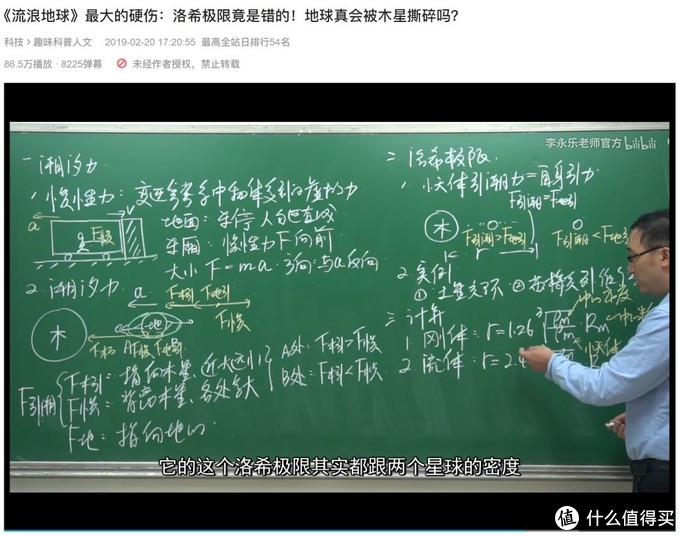 《流浪地球》最大的硬伤：洛希极限竟是错的！地球真会被木星撕碎吗？
科技 > 趣味科普人文 2019-02-20 17:20:55 最高全站日排行54名
86.5万播放 · 8225弹幕 未经作者授权，禁止转载
李永乐老师官方 bilibili
一 潮汐力
1. 惯性力：变速参考系中物体受到的虚拟力
地面：车停 人
车厢：惯性力F向前
大小 F=ma. 方向：与a反向
a
F惯
2. 潮汐力
a
F木引 F地引
F惯
木
地
F引潮
F木引：指向木星，近大远小
F惯：背离木星，各处等大
F地：指向地心
A处：F木引>F惯
B处：F木引<F惯
二 洛希极限
1. 小天体引潮力=自身引力
F引潮=F地引
木
F引潮>F地引
F引潮<F地引
r
2. 实例
① 土星光环 ②
三 计算
1. 刚体：r=1.26
2. 流体：r=2.4
它的这个洛希极限其实都跟两个星球的密度
值 什么值得买